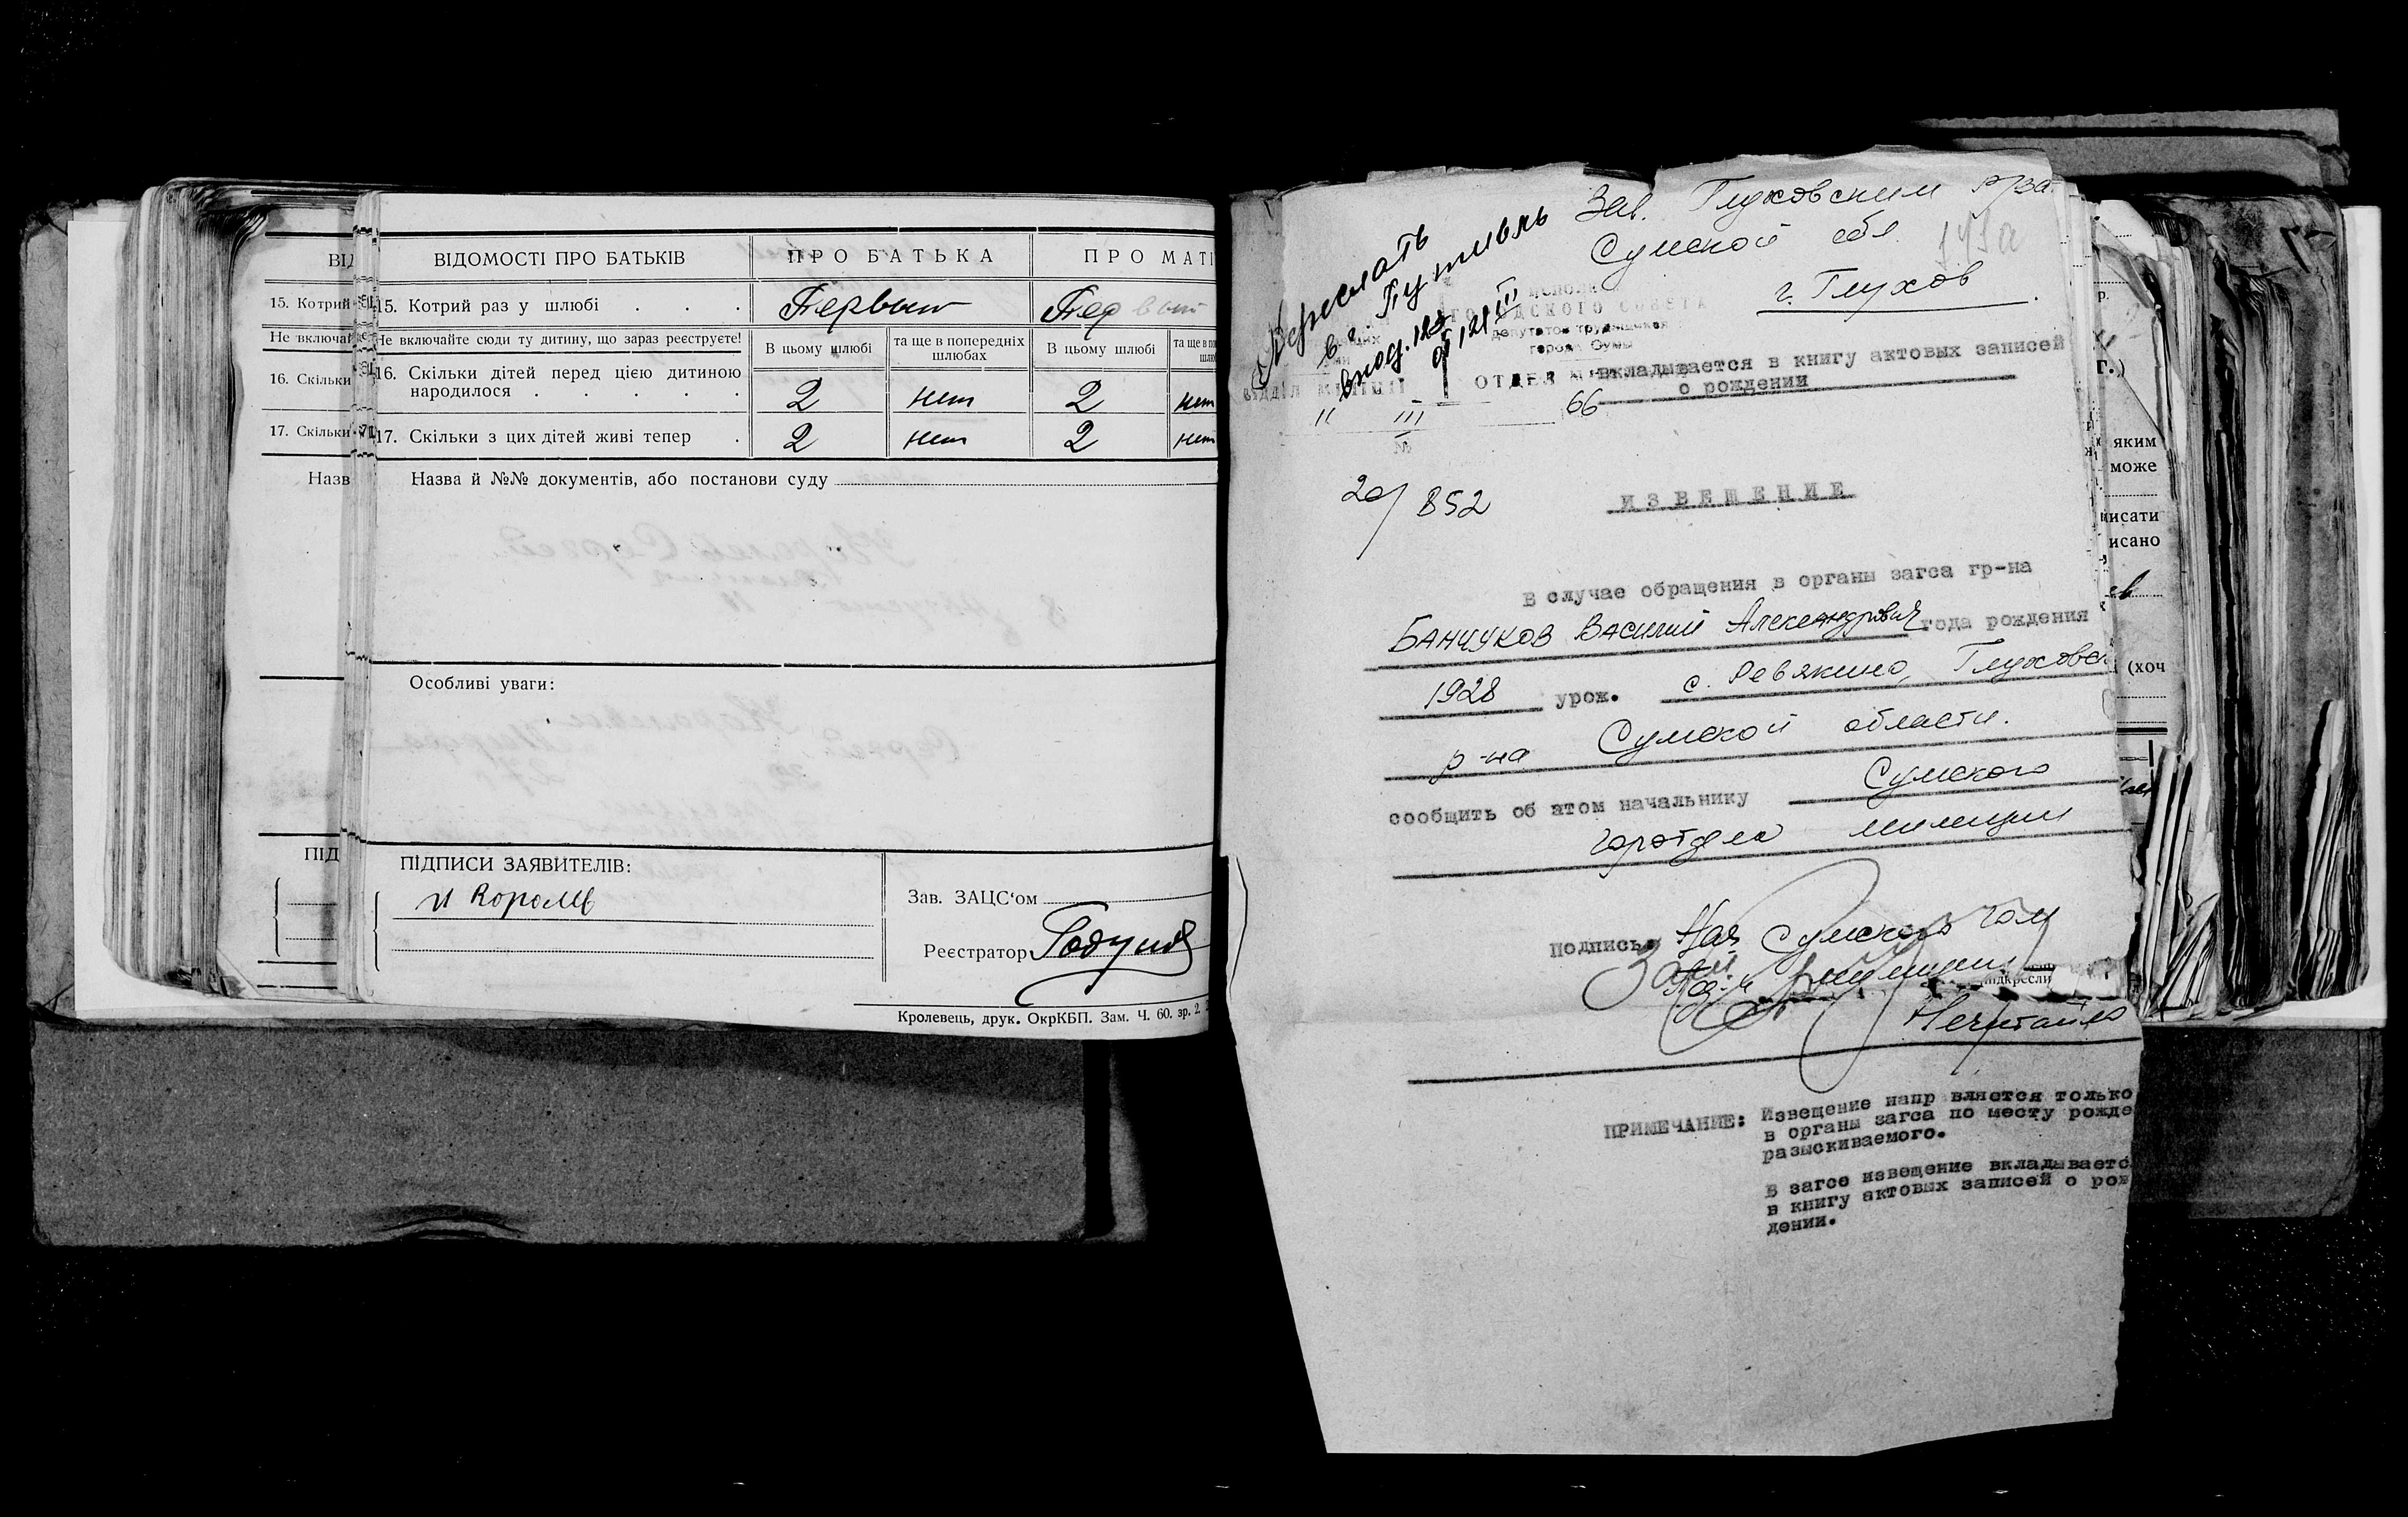 ВІДОМОСТІ ПРО БАТЬКІВ
ПРО БАТЬКА
ПРО МАТІ
15. Котрий раз у шлюбі . . .
Первый
Первый
Не включайте сюди ту дитину, що зараз реєструєте!
В цьому шлюбі
та ще в попередніх шлюбах
В цьому шлюбі
16. Скільки дітей перед цією дитиною
народилося . . . . .
2
нет
2
нет
17. Скільки з цих дітей живі тепер .
2
нет
2
нет
Назва й №№ документів, або постанови суду
Особливі уваги:
ПІДПИСИ ЗАЯВИТЕЛІВ:
Зав. ЗАЦС'ом
Реєстратор
Кролевець, друк. ОкрКБП. Зам. Ч. 60. зр. 2.
15. Котрий
Не включай
16. Скільки
17. Скільки
Назв
ПІД
Переслать
в г. Путивль
Зав. Глуховским р/за
Сумской обл.
г. Глухов
ГОРОДСКОГО СОВЕТА
депутатов трудящихся
города Сумы
ОТДЕЛ
вкладывается в книгу актовых записей
о рождении
11 III 66
№
20/852
ИЗВЕЩЕНИЕ
В случае обращения в органы загса гр-на
Банчуков Василий Александрович года рождения
1928 урож. с. Ревякино, Глуховск
р-на Сумской области.
сообщить об этом начальнику Сумского
горотдела милиции
Подпись: Нач Сумского гом
Нечитайло
ПРИМЕЧАНИЕ: Извещение напр вляется только
в органы загса по месту рожде
разыскиваемого.
В загсе извещение вкладываетс
в книгу актовых записей о рож
дении.
яким
може
писати
исано
(хоч